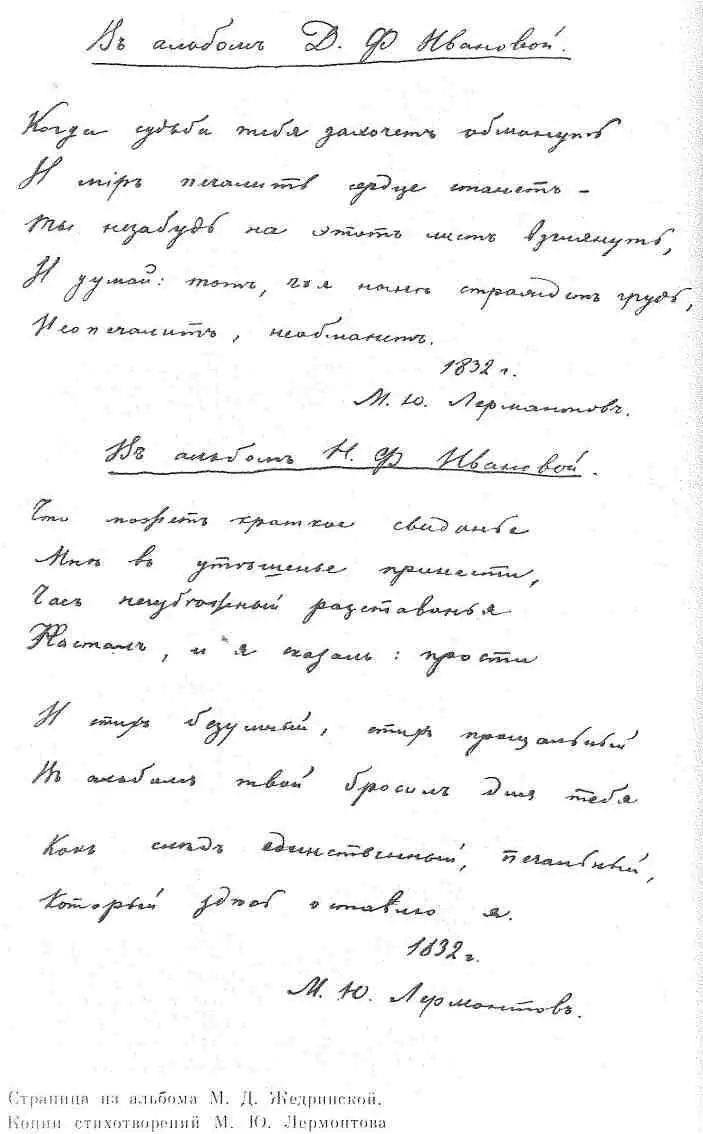 Въ альбомъ Д. Ф Ивановой.
Когда судьба тебя захочетъ обмануть
И мiръ печалить сердце станетъ –
Ты незабудь на этотъ листъ взглянуть,
И думай: тотъ, чья нынѣ страждетъ грудь,
Неопечалитъ, необманетъ.
1832 г.
М. Ю. Лермантовъ.
Въ альбомъ Н. Ф Ивановой.
Что можетъ краткое свиданье
Мнѣ въ утѣшенье принести,
Часъ неизбѣжный разставанья
Насталъ, и я сказалъ: прости
И стихъ безумный, стихъ прощальный
Въ альбомъ твой бросилъ для тебя
Какъ слѣдъ единственный, печальный,
Который здѣсь оставлю я.
1832 г.
М. Ю. Лермонтовъ.
Страница из альбома М. Д. Жедринской.
Копии стихотворений М. Ю. Лермонтова